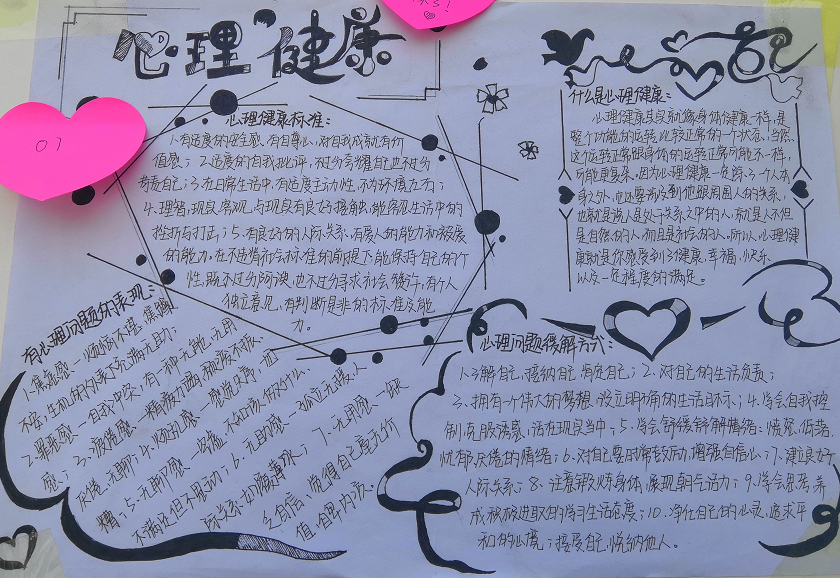 心理健康
07
心理健康标准:
1.有适度的安全感、有自尊心,对自我成就有价
值感;2.适度的自我批评,不过分夸耀自己也不过分
苛责自己;3.在日常生活中,有适度主动性,不为环境左右;
4.理智,现实,客观,与现实有良好接触,能容忍生活中的
挫折与打击;5.有良好的人际关系,有爱人的能力和被爱
的能力,在不违背社会标准的前提下能保持自己的个
性,既不过分阿谀,也不过分寻求社会赞许,有个人
独立意见,有判断是非的标准及能
力。
什么是心理健康:
心理健康其实就像身体健康一样,是
整个功能的运转比较正常的一个状态,当然
这个运转正常跟身体的运转正常可能不一样,
可能更复杂,因为心理健康一定除了一个人本
身之外,他还要涉及到他跟周围人的关系,
也就是说人是处于关系之中的人,就是人不但
是自然的人,而且是社会的人。所以,心理健
康就是你感受到了健康、幸福、快乐
以及一定程度的满足。
有心理问题的表现:
1.焦虑感—烦恼不堪,焦躁
不安,生机的外表下充满无助;
2.罪恶感—自我冲突,有一种无能、无用
感;3.疲倦感—精疲力竭,颓废不振、
厌倦、无聊;4.烦乱感—感觉失序,一团
糟;5.无聊感—空虚,不知该做什么、
不满足但不愿动;6.无助感—孤立无援、人
际关系如履薄冰;7.无用感—缺
乏自信,觉得自己毫无价
值,自卑内疚。
心理问题缓解方式:
1.了解自己,接纳自己,肯定自己;2.对自己的生活负责;
3.拥有一个伟大的梦想,设立明确的生活目标;4.学会自我控
制,克服诱惑,活在现实当中;5.学会舒缓纾解情绪:愤怒、低落
忧郁厌倦的情绪;6.对自己要时常鼓励,增强自信心;7.建立良好
人际关系;8.注意锻炼身体,展现朝气活力;9.学会思考,养
成积极进取的学习生活态度;10.净化自己的心灵,追求平
和的心境;接受自己,悦纳他人。